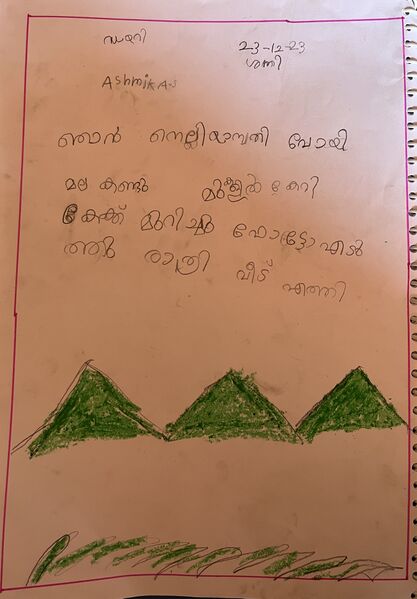 ഡയറി 23-12-23
ശനി
Ashmika.s
ഞാൻ നെല്ലിയാമ്പതി പോയി
മല കണ്ടു മുകളിൽ കേറി
കേക്ക് മുറിച്ചു ഫോട്ടോ എടു
ത്തു രാത്രി വീട് എത്തി